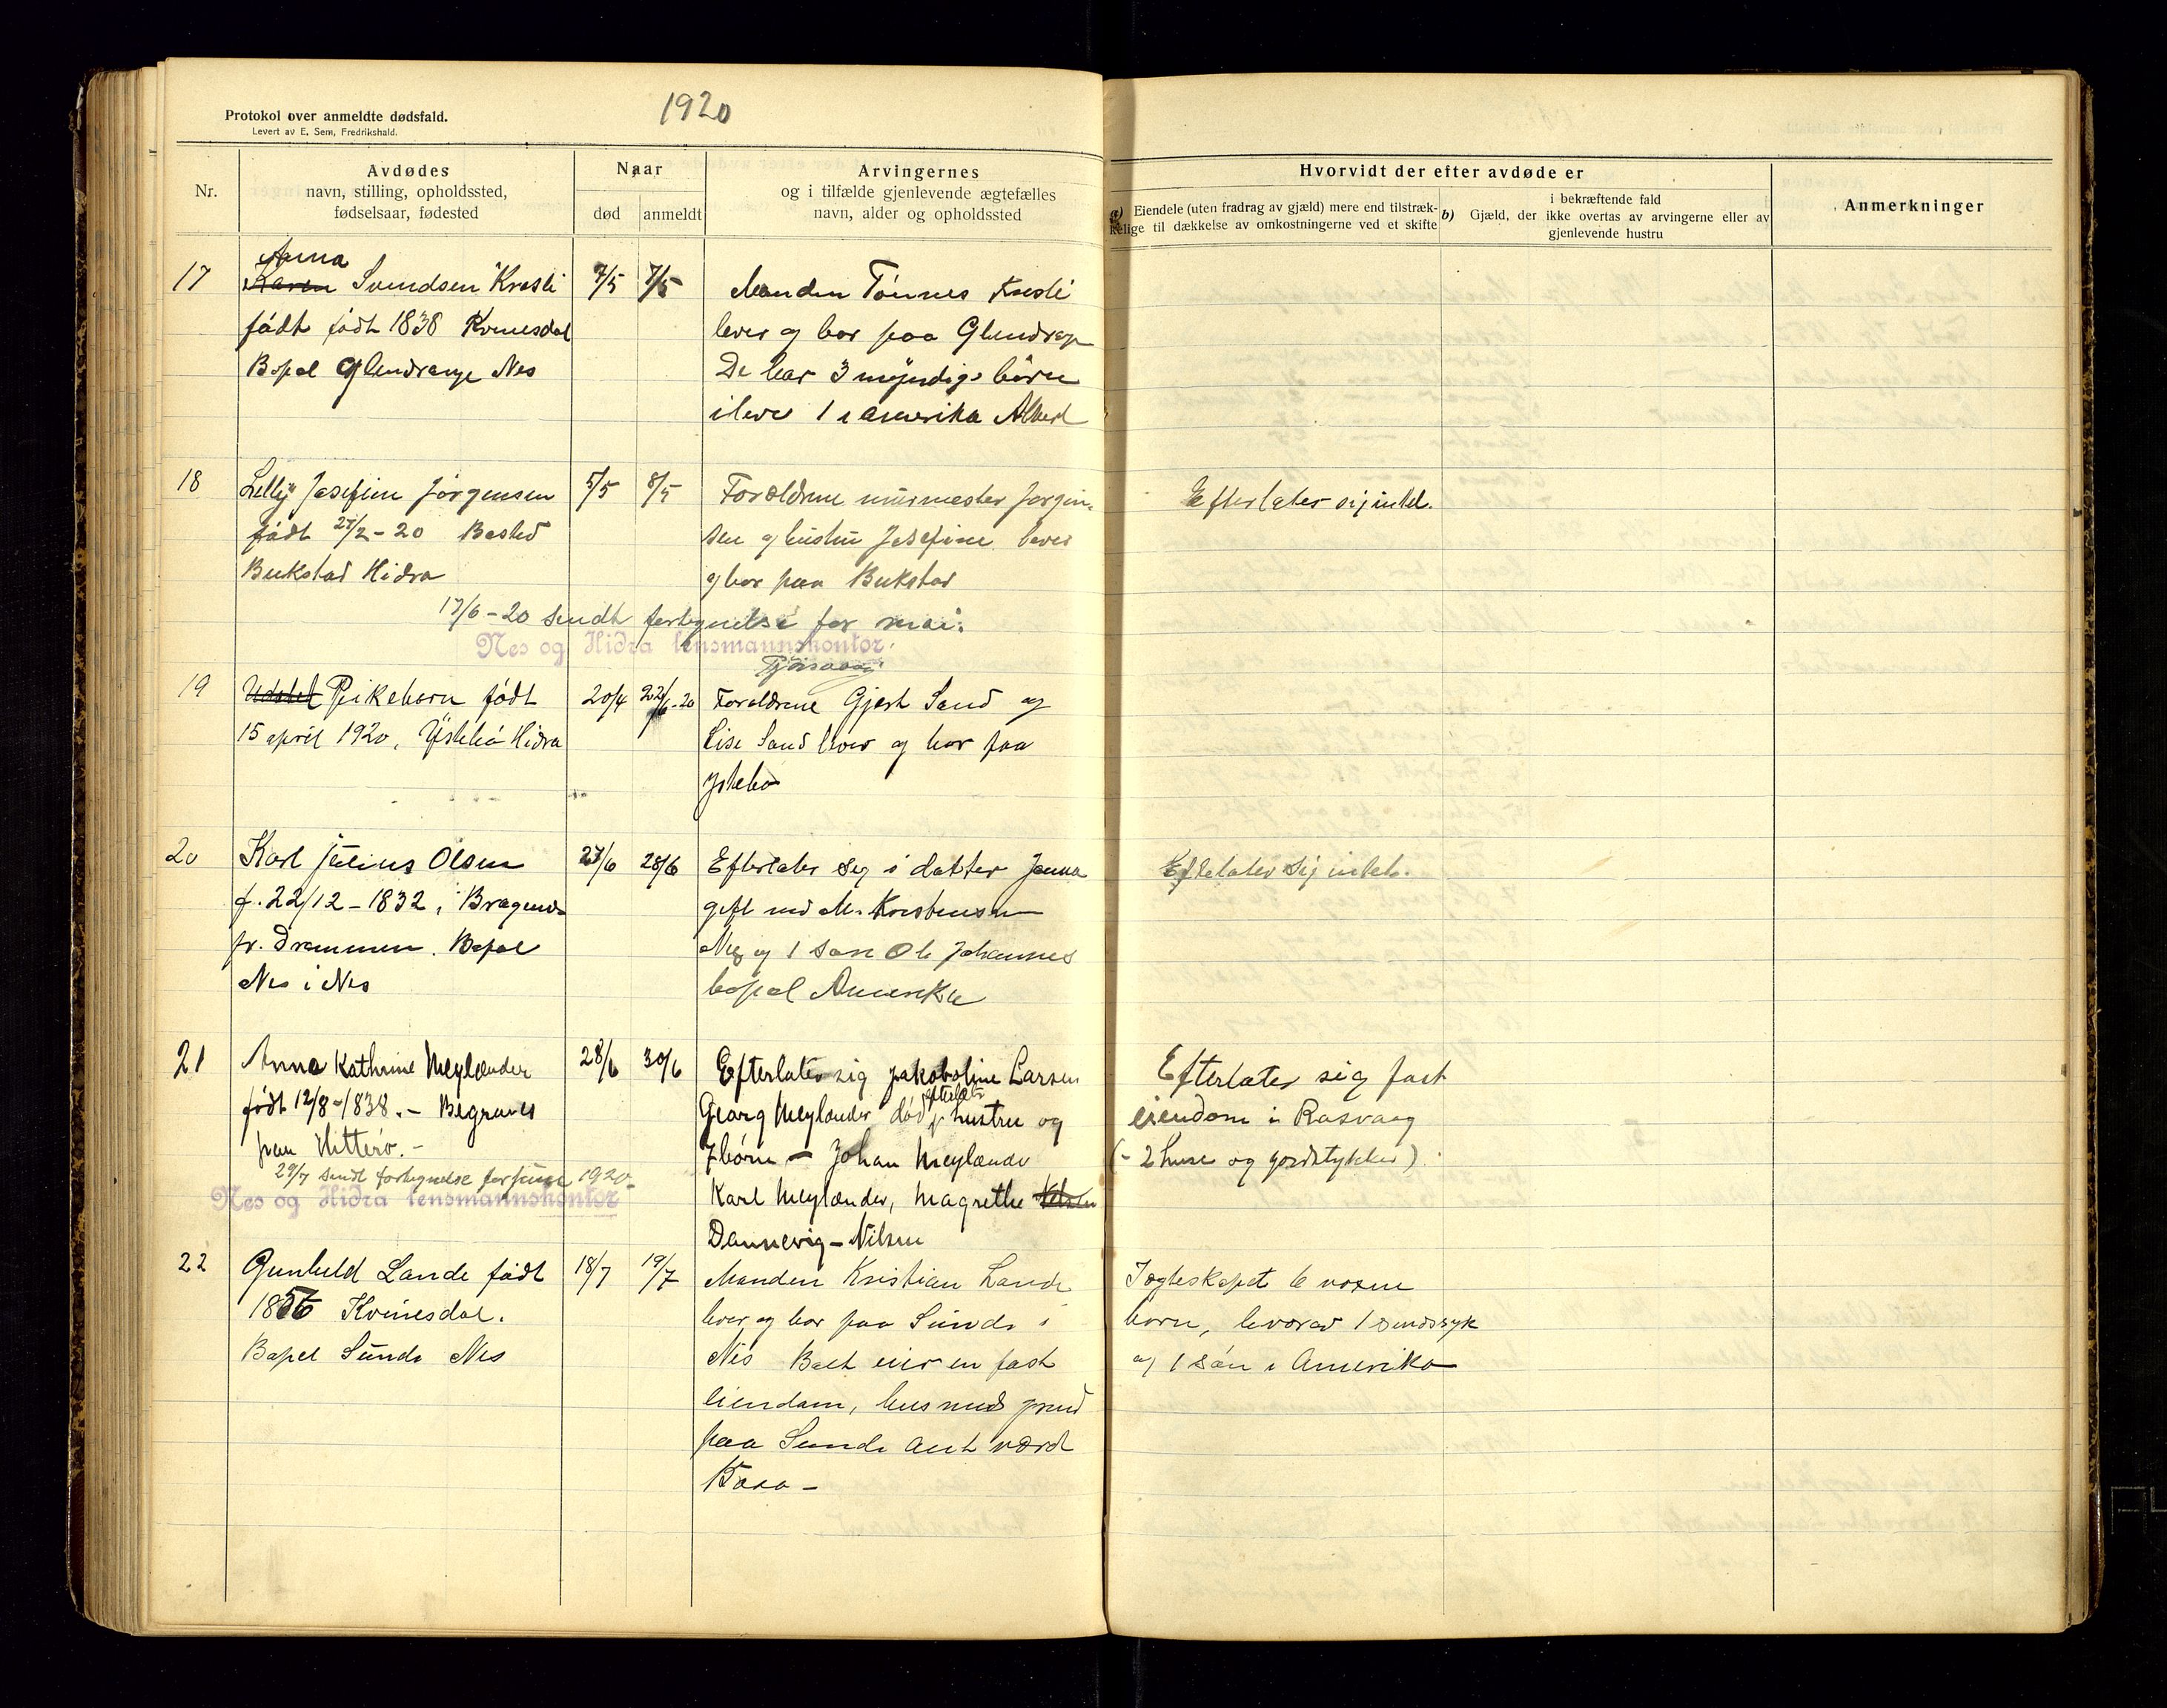 1920
Protokol over anmeldte dødsfald.
Levert av E. Sem, Fredrikshald.
Nr.
Avdødes
navn, stilling, opholdssted,
fødselsaar, fødested
Naar
død
anmeldt
Arvingernes
og i tilfælde gjenlevende ægtefælles
navn, alder og opholdssted
Hvorvidt der efter avdøde er
a) Eiendele (uten fradrag av gjæld) mere end tilstræk-
kelige til dækkelse av omkostningerne ved et skifte
b) Gjæld, der i bekræftende fald
ikke overtas av arvingerne eller av
gjenlevende hustru
Anmerkninger
17
Anna
Karen Svendsen Kvesli
født født 1838 Kvinesdal
Bopel Glendrange Nes
7/5
7/5
Manden Tønnes
lever og bor paa
De har 3 myndige børn
ilive 1 i amerika Albert
18
Lelly Josefine Jørgensen
født 27/2-20 Bosted
Bukstad Hidra
5/5
8/5
Foreldrene murmester Jørgen-
sen og hustru Josefine lever
og bor paa Bukstad
Efterlater sig intet.
17/6-20 sendt fortegnelse for mai.
Nes og Hidra lensmannskontor.
19
Pikebarn født
15 april 1920, Ystebø Hidra
20/4
22/6-20
Foreldrene Gjert Sand og
Lise Sand lever og bor paa
Ystebø
20
Karl Julius Olsen
f. 22/12-1832, i Bragenes
pr. Drammen. Bopel
Nes i Nes
27/6
28/6
Efterlater seg i datter Jenna
gift med M. Kristensen
Nes og 1 søn Ole Johannes
bopel Amerika
Efterlater sig intet.
21
Anna Kathrine Meylænder
født 12/8-1838.- Begraves
paa Hitterø.-
28/6
30/6
Efterlater sig Jakoboline Larsen
Georg Meylænder død, efterlater hustru og
7 børn - Johan Meylænder
Karl Meylænder, Magrethe
Dannevig-Nilsen
Efterlater sig fast
eiendom i Rasvaag
(- 2 huse og jordstykker)
29/7 sendt fortegnelse for june 1920-
Nes og Hidra lensmannskontor
22
Gunhild Lande født
1856 Kvinesdal.
Bopel Sunde Nes
18/7
19/7
Manden Kristian Lande
lever og bor paa Sunde i
Nes Boet eier en fast
eiendom, hus med grund
paa Sunde ant verd
I egteskapet 6 voxne
børn, hvorav 1 sindssyk
og 1 søn i Amerika